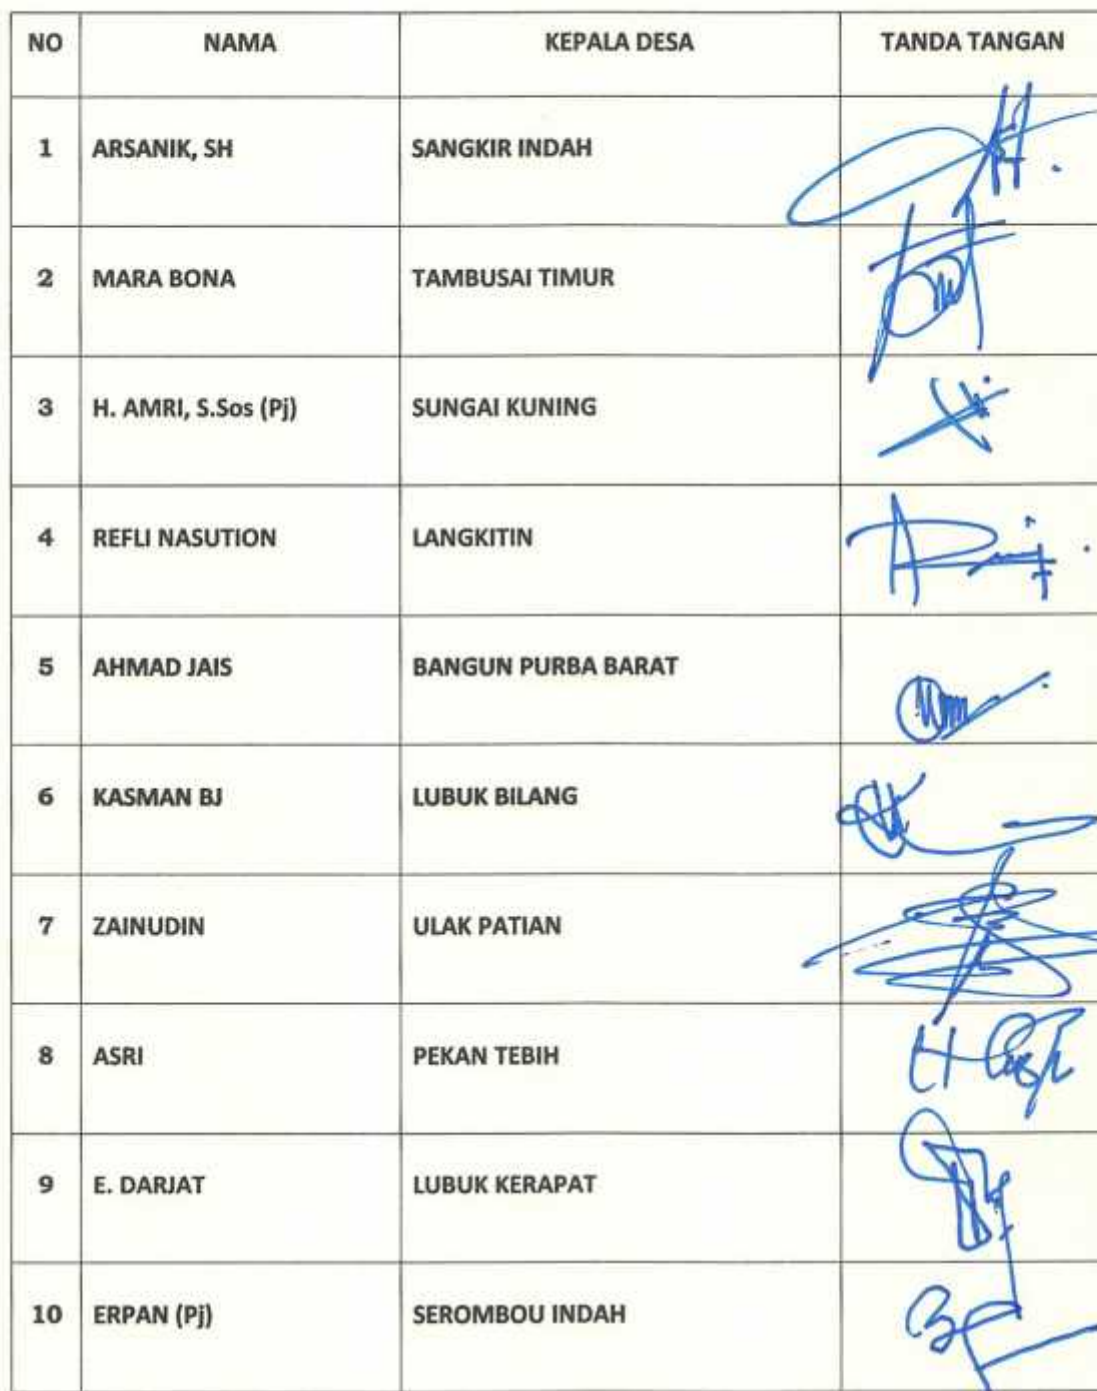 NO NAMA KEPALA DESA TANDA TANGAN
1 ARSANIK, SH SANGKIR INDAH
2 MARA BONA TAMBUSAI TIMUR
3 H. AMRI, S.Sos (Pj) SUNGAI KUNING
4 REFLI NASUTION LANGKITIN
5 AHMAD JAIS BANGUN PURBA BARAT
6 KASMAN BJ LUBUK BILANG
7 ZAINUDIN ULAK PATIAN
8 ASRI PEKAN TEBIH
9 E. DARJAT LUBUK KERAPAT
10 ERPAN (Pj) SEROMBOU INDAH